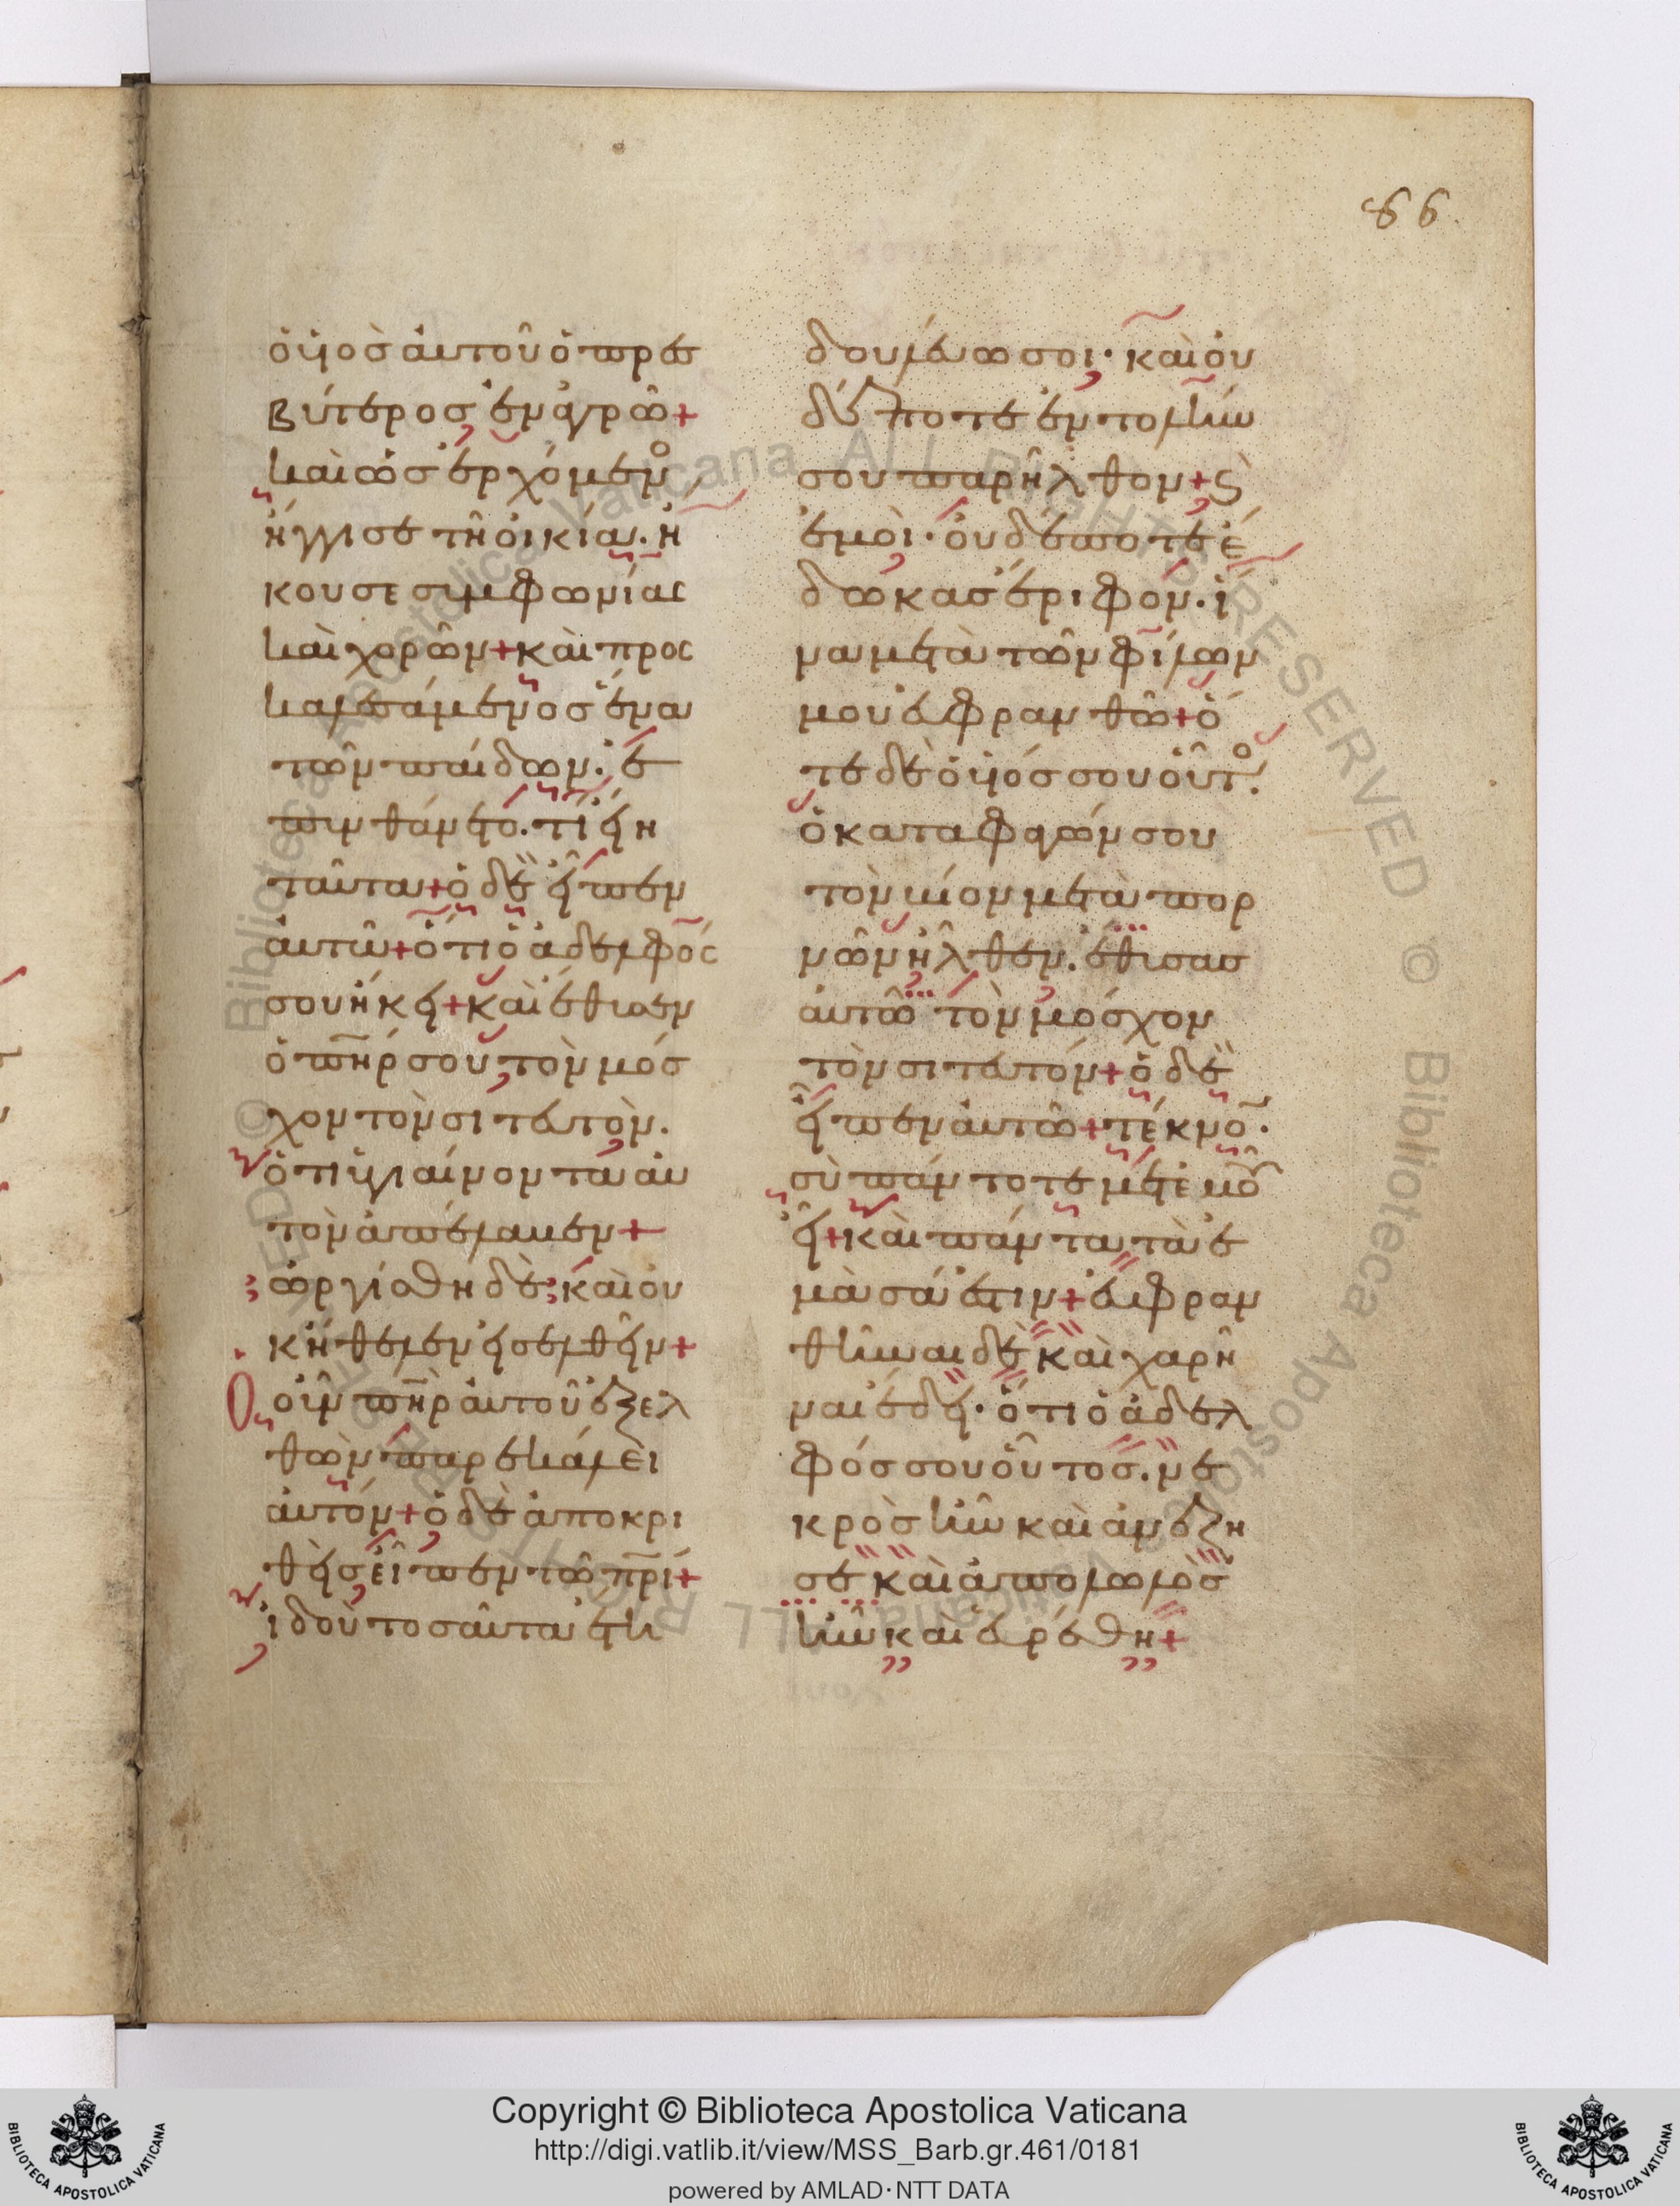 86
ὁ υἱὸς αὐτοῦ ὁ πρεσ
βύτερος ἐν ἀγρῶ+
καὶ ὡς ἐρχόμενο
ἤγγισε τῆ οἰκία· ἤ
κουσε συμφωνίας
καὶ χορῶν+ καὶ προσ
καλεσάμενος ἕνα
τῶν παίδων· ἐ
πυνθάνετο· τί εἴη
ταῦτα+ ὁ δὲ εἶπεν
αὐτῶ+ ὅτι ὁ ἀδελφός
σου ἥκει+ καὶ ἔθυσεν
ὁ πηρ σου τὸν μόσ
χον τὸν σιτευτὸν·
ὅτι ὑγιαίνοντα αὐ
τὸν ἀπέλαβεν+
ὠργίσθη δὲ· καὶ οὐ
κ ἤθελεν εἰσελθεῖν+
Ὁ οὖν πηρ αὐτοῦ ἐξελ
θὼν παρεκάλει
αὐτόν+ ὁ δὲ ἀποκρι
θεὶς εἶπεν τῶ πρι+
ἰδοὺ τοσαῦτα ἔτη
δουλεύω σοι· καὶ οὐ
δέποτε ἐντολήν
σου παρῆλθον+ ϗ
ἐμοὶ· οὐδέποτε ἔ
δωκας ἔριφον· ἵ
να μετὰ τῶν φίλων
μου εὐφρανθῶ+ ὅ
τε δὲ ὁ υἱός σου οὗτο·
ὁ καταφαγών σου
τὸν βίον μετὰ πορ
νῶν ἦλθεν· ἔθυσας
αὐτῶ τὸν μόσχον
τὸν σιτευτόν+ ὁ δὲ
εἶπεν αὐτῶ+ τέκνο·
σὺ πάντοτε μετ ἐμο
εἶ+ καὶ πάντα τὰ ἐ
μὰ σά ἐστιν+ εὐφραν
θῆναι δὲ καὶ χαρῆ
ναι ἔδει· ὅτι ὁ ἀδελ
φός σου οὗτος· νε
κρὸς ἦν καὶ ἀνέζη
σε καὶ ἀπολωλὸς
ἦν καὶ εὑρέθη+
Copyright © Biblioteca Apostolica Vaticana
http://digi.vatlib.it/view/MSS_Barb.gr.461/0181
powered by AMLAD·NTT DATA